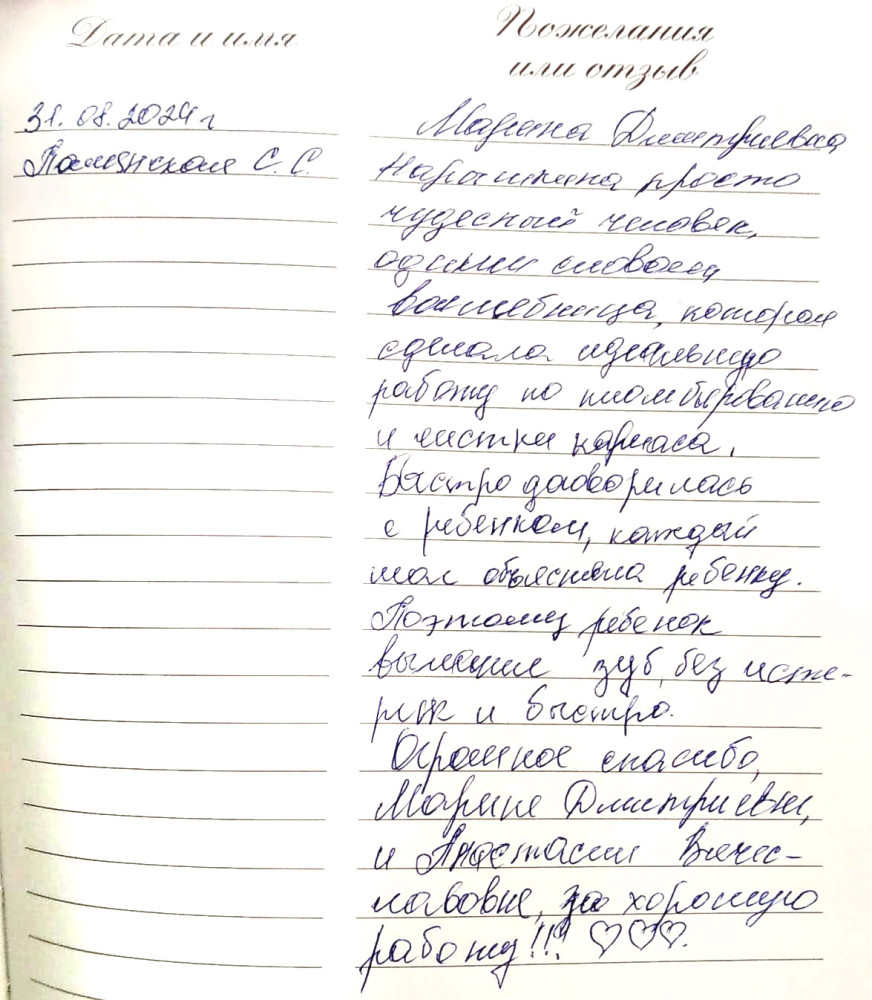 Дата и имя
Пожелания
или отзыв
31.08.2024г
С. С.
Марина Дмитриевна
Нарышкина просто
чудесный человек,
одним словом
волшебница, которая
сделала идеальную
работу по пломбированию
и чистки кариеса.
Быстро договорилась
с ребенком, каждый
шаг объясняла ребенку.
Поэтому ребенок
вылечил зуб, без исте-
рик и быстро.
Огромное спасибо,
Марине Дмитриевне,
и Анастасии Вячес-
лавовне, за хорошую
работу!!! ♡♡♡.